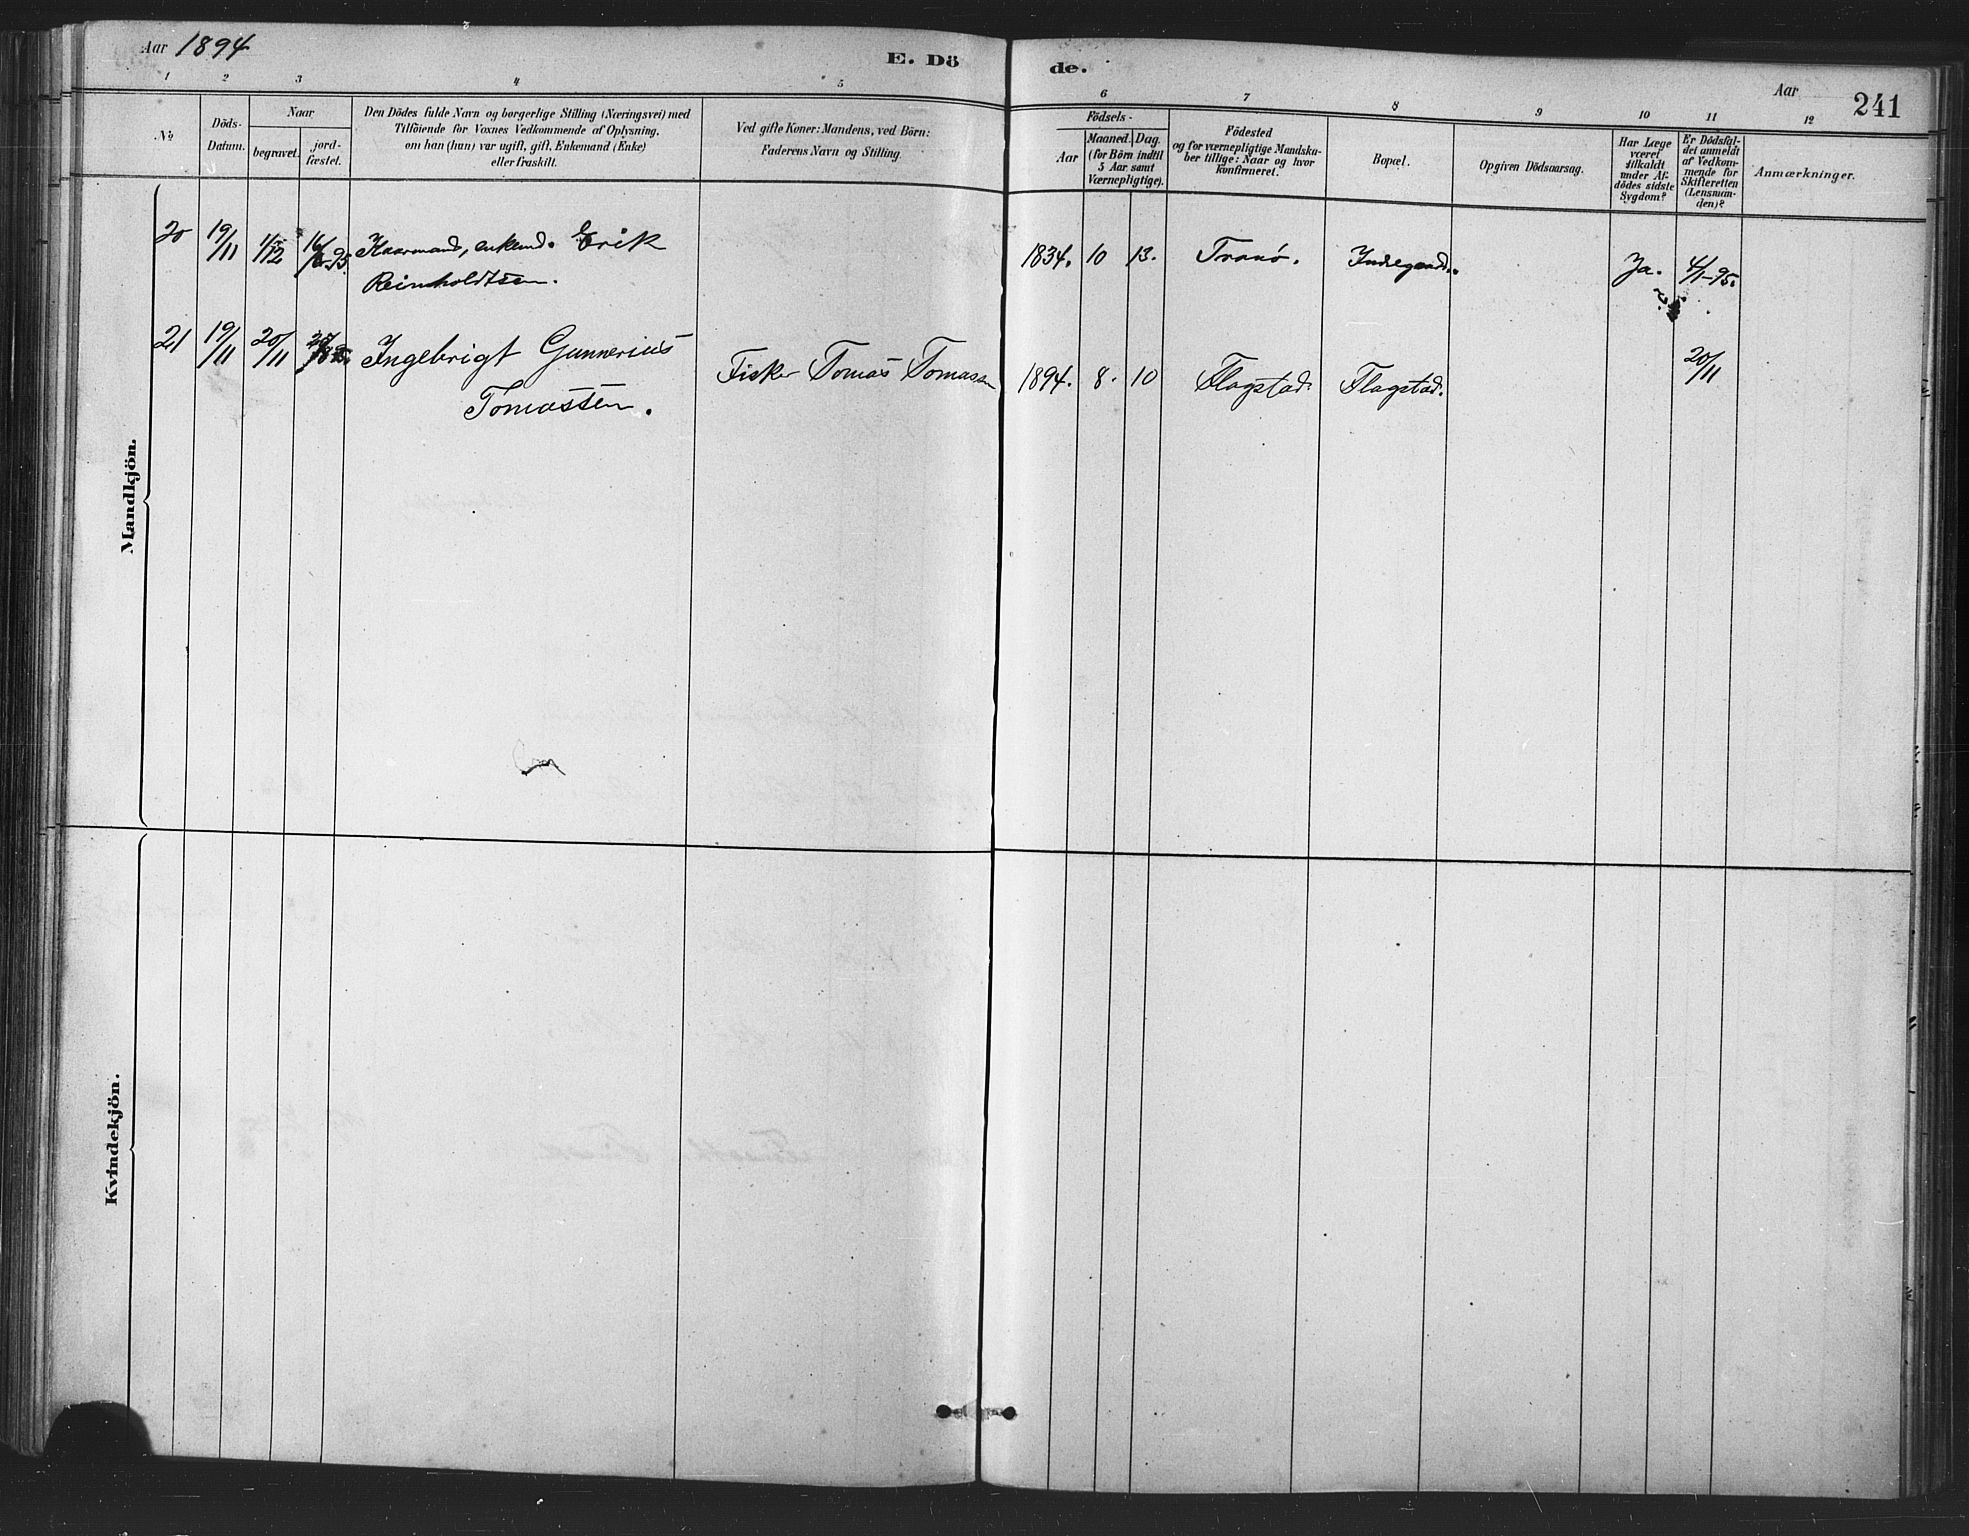 Aar 1894
E. Dö
de.
Aar
241
1 2 3 4 5 6 7 8 9 10 11 12
No
Döds-
Datum.
Naar
begravet.
jord-
fæstet.
Den Dödes fulde Navn og borgerlige Stilling (Næringsvei) med
Tilföiende for Voxnes Vedkommende af Oplysning,
om han (hun) var ugift, gift, Enkemand (Enke)
eller fraskilt.
Ved gifte Koner: Mandens, ved Börn:
Faderens Navn og Stilling.
Födsels-
Aar
Maaned.
Dag.
(for Börn indtil
5 Aar samt
Værnepligtige).
Födested
og for værnepligtige Mandska-
ber tillige: Naar og hvor
konfirmeret.
Bopæl.
Opgiven Dödsaarsag.
Har Læge
været
tilkaldt
under Af-
dödes sidste
Sygdom?
Er Dödsfal-
det anmeldt
af Vedkom-
mende for
Skifteretten
(Lensman-
den)?
Anmærkninger.
Mandkjön.
20 19/11 1/12 Kaarmand, enkemd. Erik
Reinholdtsen.
1834. 10 13. Tranö. Indregaard. Ja. 4/1-95.
21 19/11 20/11 Ingebrigt Gunnerius
Tomassen.
Fisker Tomas Tomassen 1894. 8. 10 Flagstad. Flagstad. 20/11
Kvindekjön.